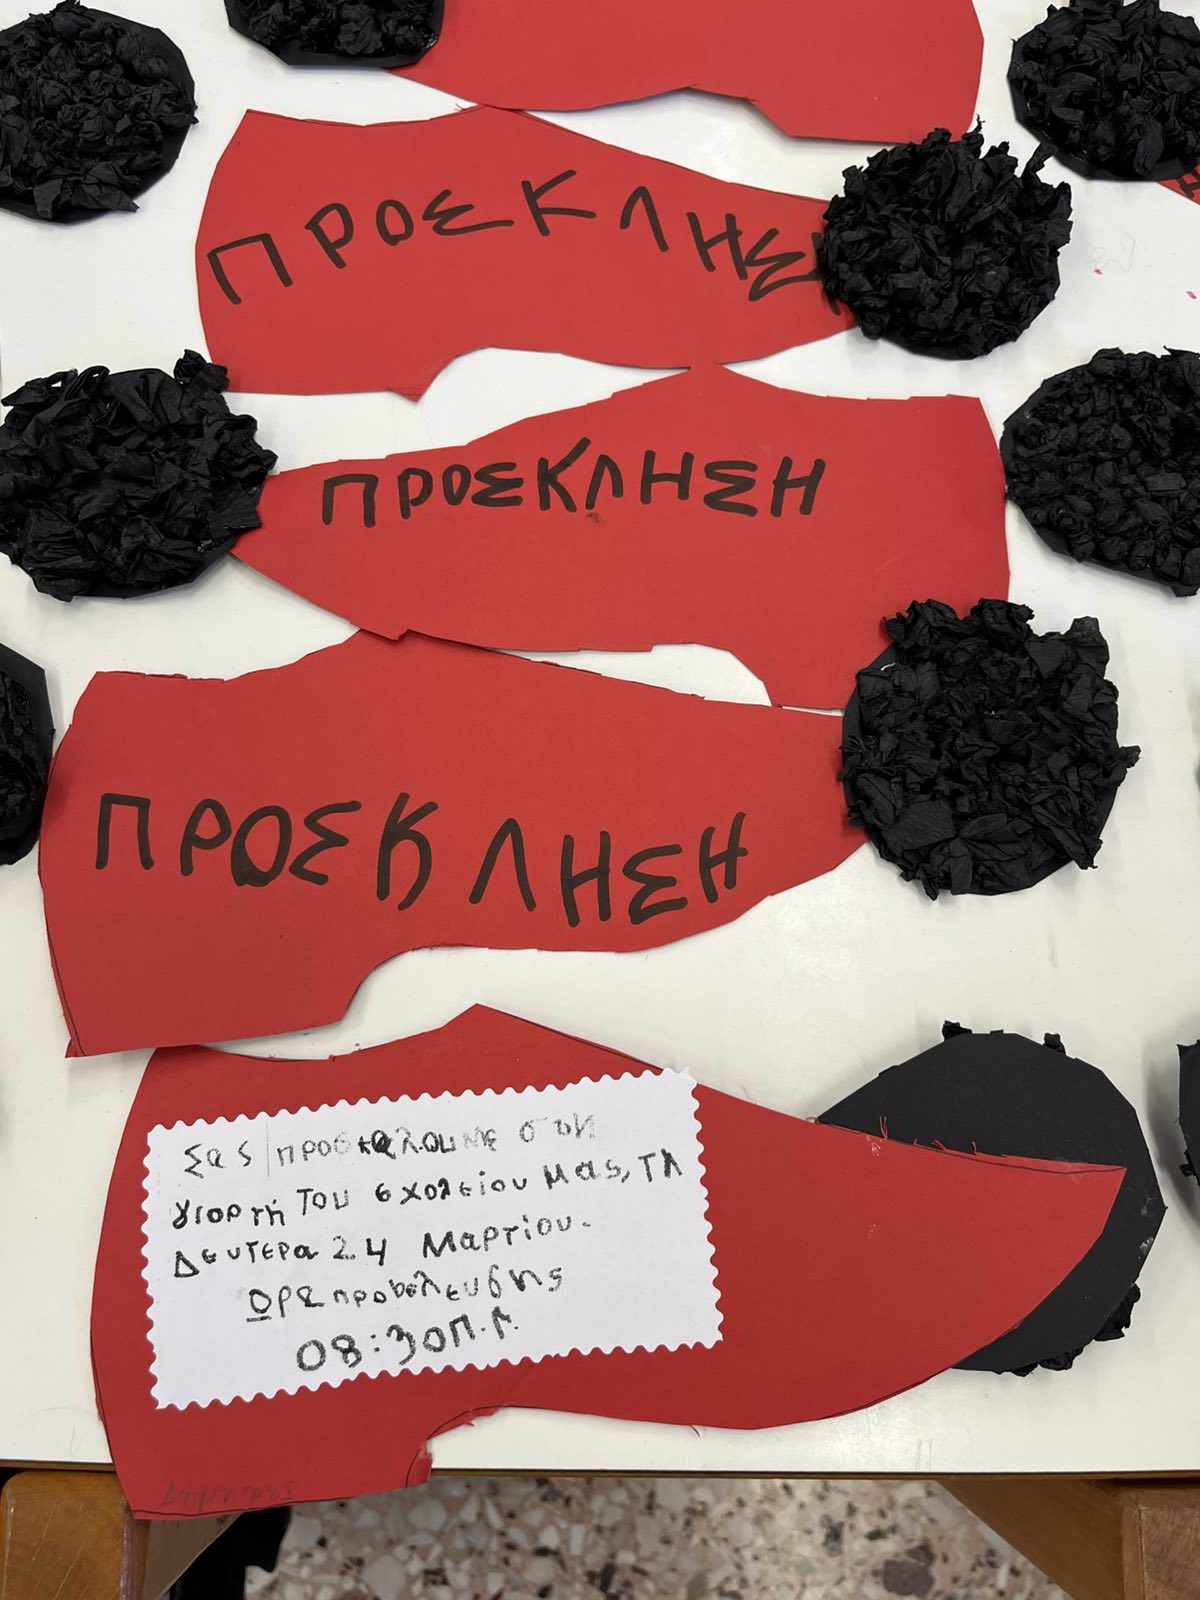 ΠΡΟΣΚΛΗΣ
ΠΡΟΣΚΛΗΣΗ
ΠΡΟΣΚΛΗΣΗ
Σας προσκαλουμε στη
γιορτή του σχολείου μας, τη
Δευτερα 24 Μαρτίου.
Ωρα προσέλευσης
08:30π.μ.
Δημήτρης